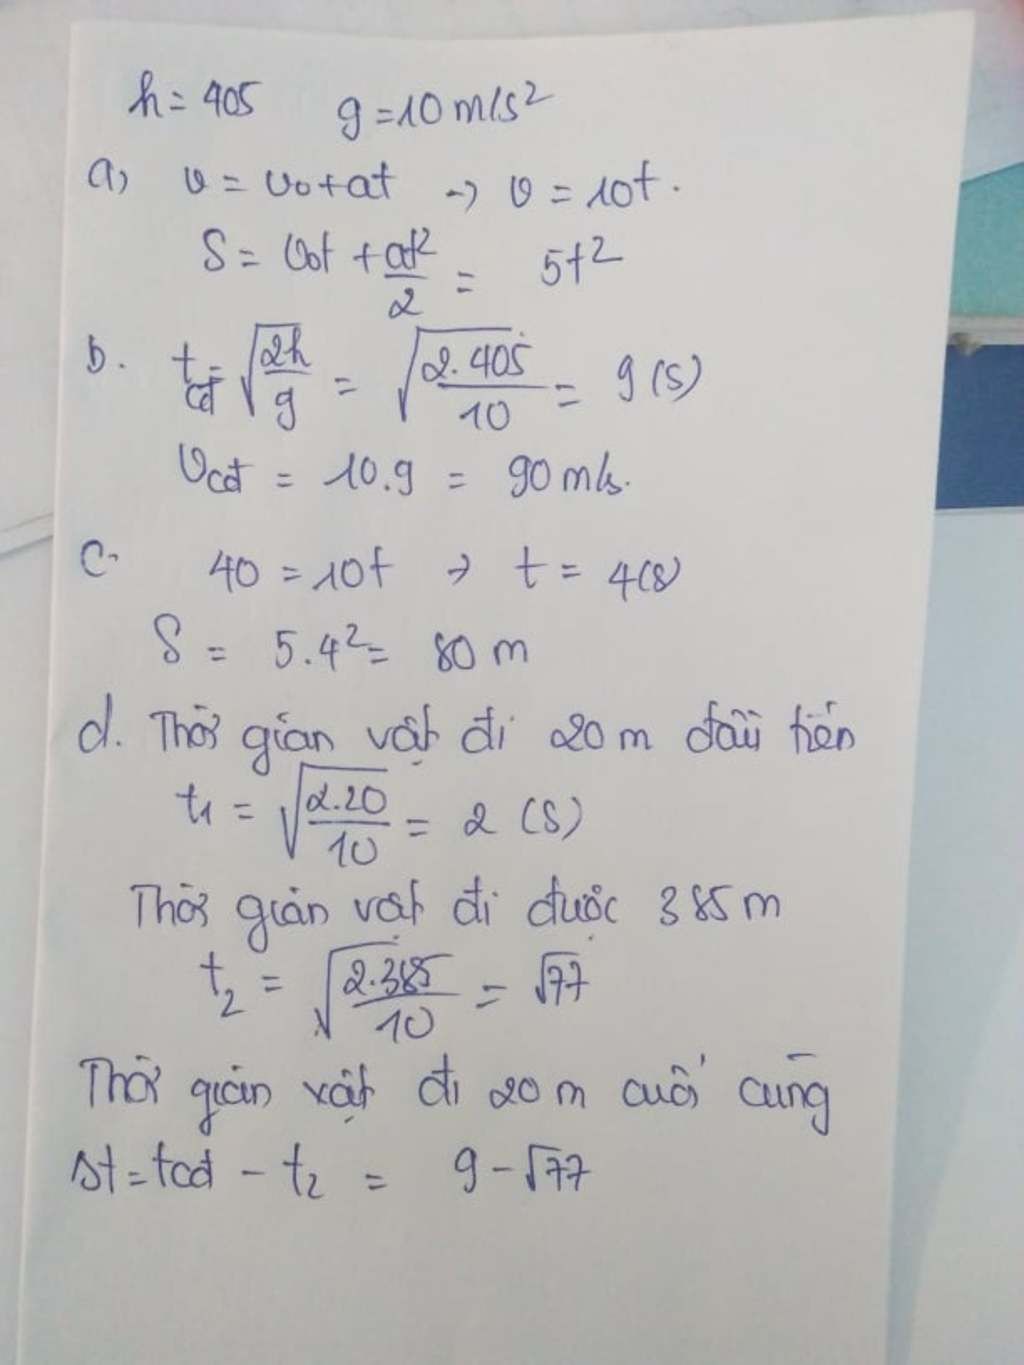 h = 405 g = 10 m/s²
a, v = v₀ + at → v = 10t.
S = v₀t + at²/2 = 5t²
b. tcđ = √(2h/g) = √(2.405/10) = 9 (s)
vcđ = 10.9 = 90 m/s.
c. 40 = 10t → t = 4(s)
S = 5.4² = 80 m
d. Thời gian vật đi 20 m đầu tiên
t₁ = √(2.20/10) = 2 (s)
Thời gian vật đi được 385 m
t₂ = √(2.385/10) = √77
Thời gian vật đi 20 m cuối cùng
Δt = tcđ - t₂ = 9 - √77